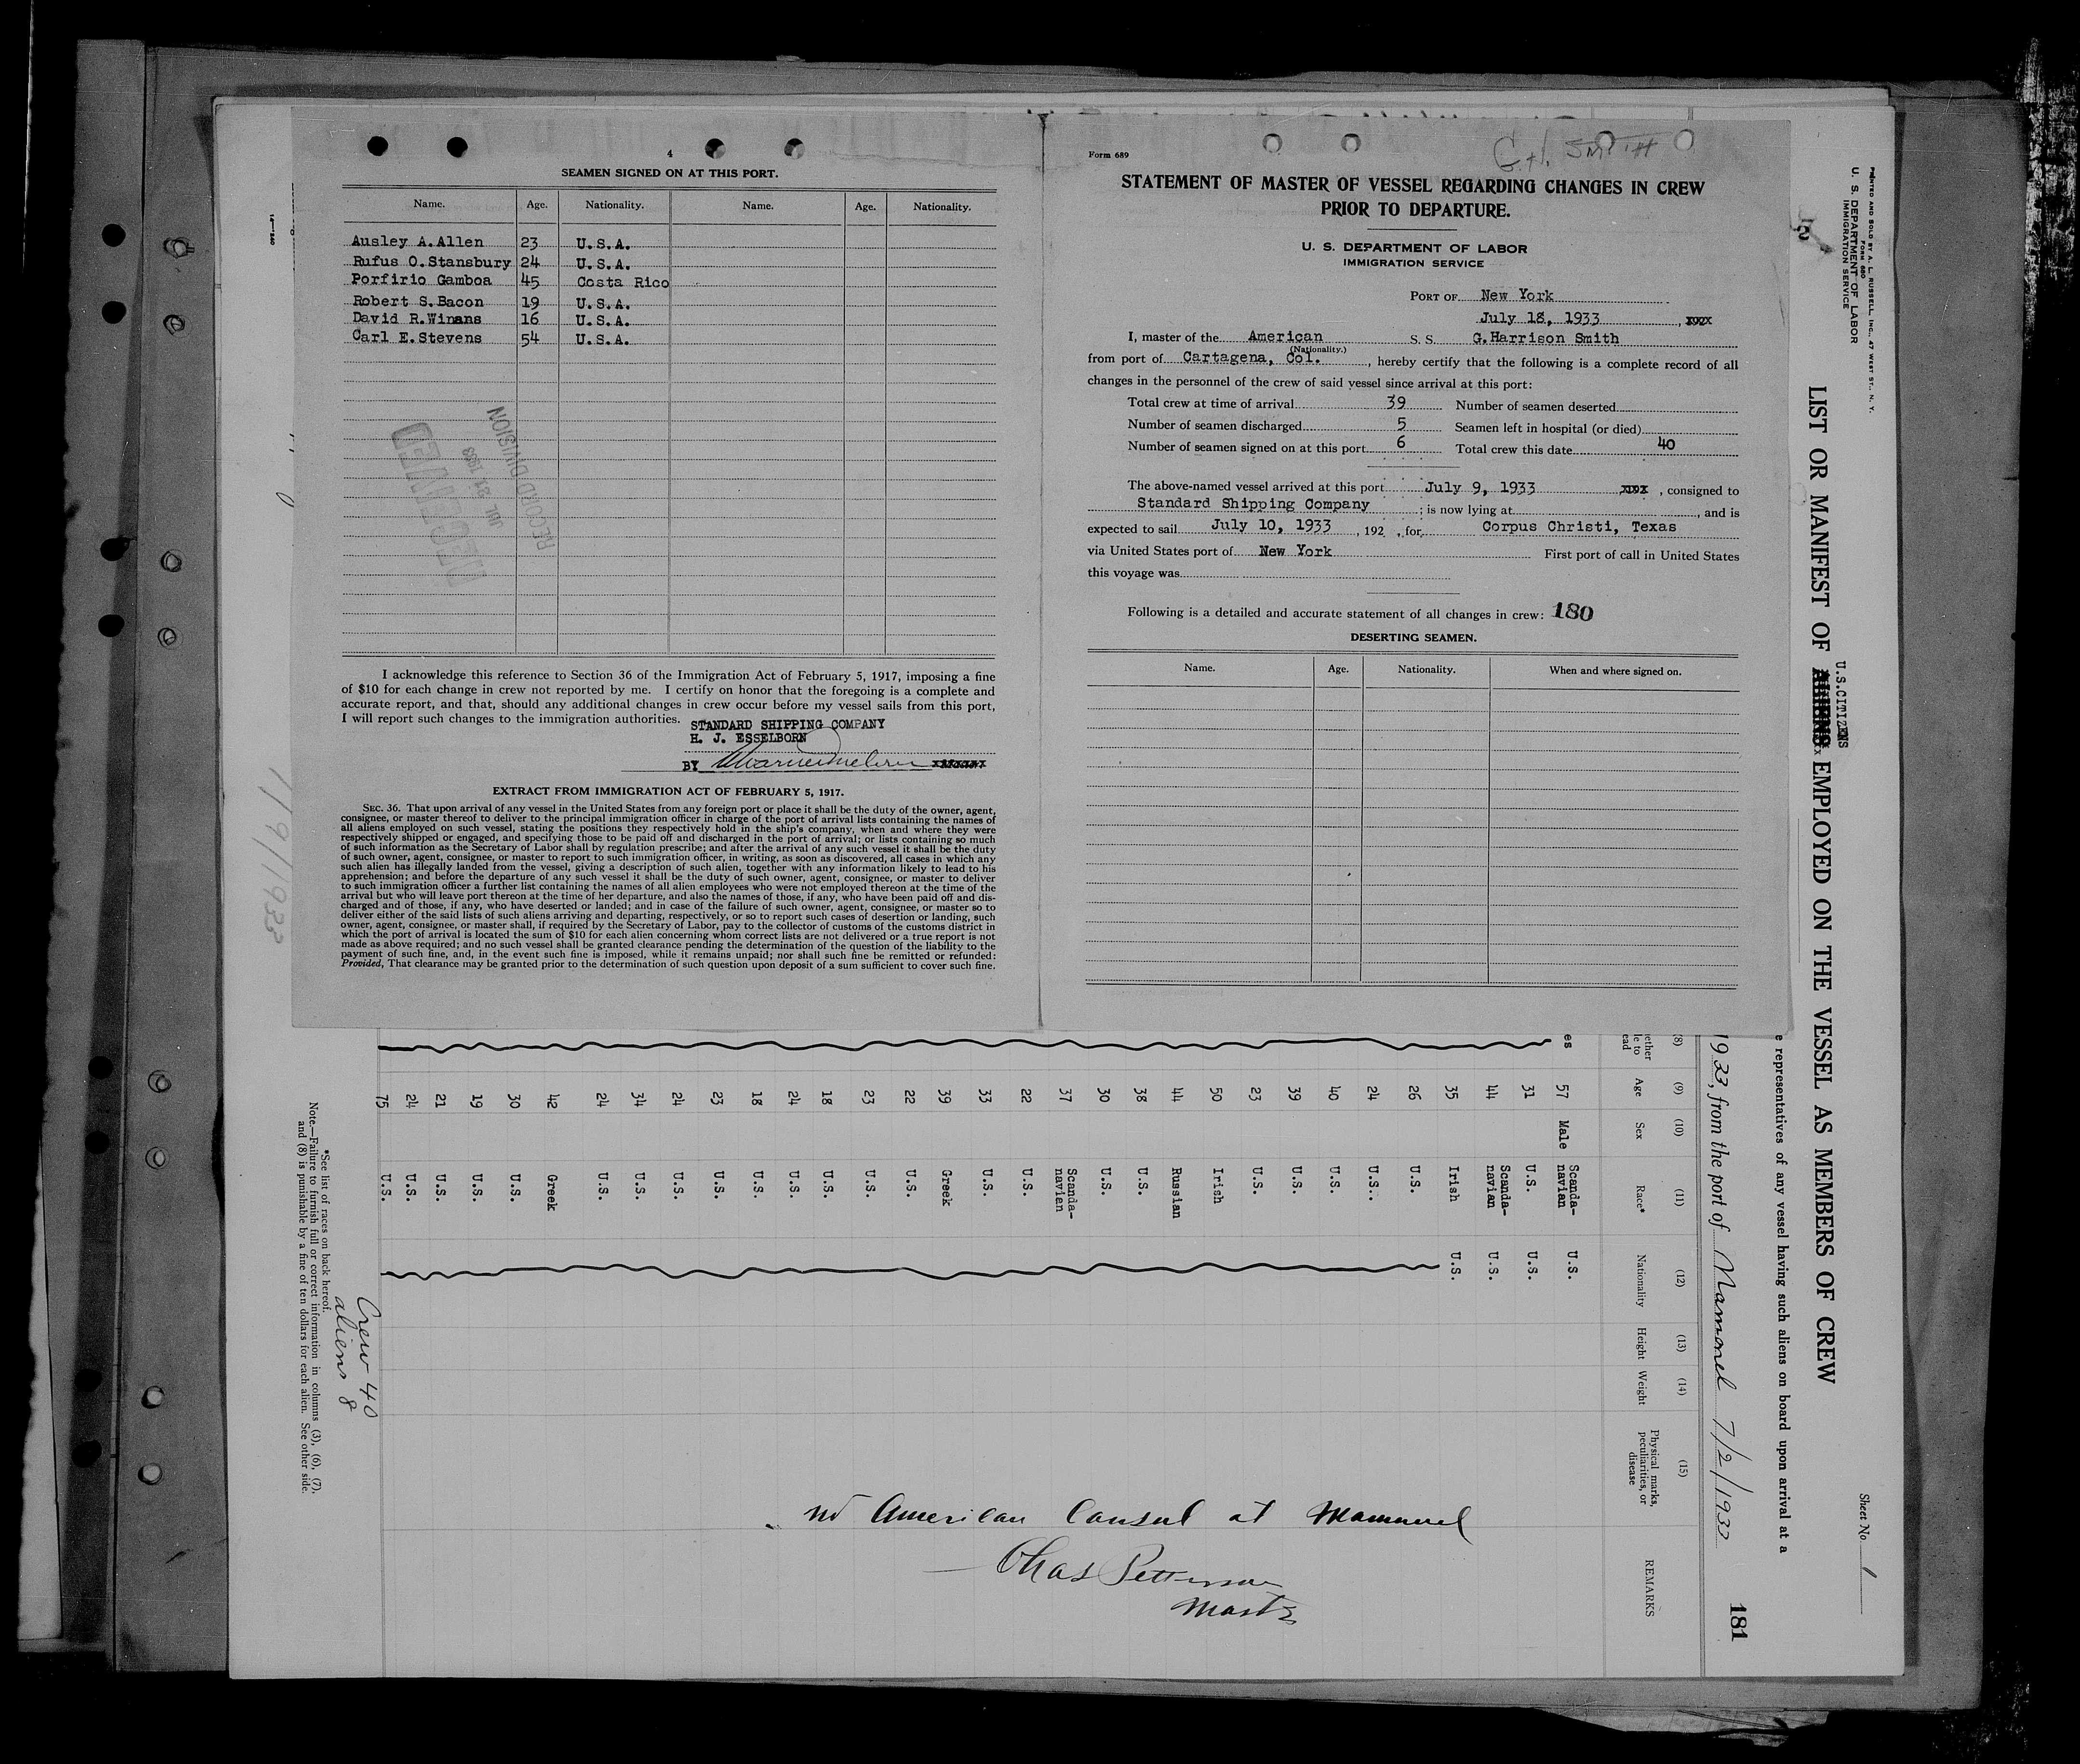 4
SEAMEN SIGNED ON AT THIS PORT.
Name. Age. Nationality. Name. Age. Nationality.
Ausley A. Allen 23 U.S.A.
Rufus O. Stansbury 24 U.S.A.
Porfirio Gamboa 45 Costa Rico
Robert S. Bacon 19 U.S.A.
David R. Winans 16 U.S.A.
Carl E. Stevens 54 U.S.A.
RECEIVED
JUL 21 1933
RECORD DIVISION
I acknowledge this reference to Section 36 of the Immigration Act of February 5, 1917, imposing a fine
of $10 for each change in crew not reported by me. I certify on honor that the foregoing is a complete and
accurate report, and that, should any additional changes in crew occur before my vessel sails from this port,
I will report such changes to the immigration authorities.
STANDARD SHIPPING COMPANY
H. J. ESSELBORN
BY
EXTRACT FROM IMMIGRATION ACT OF FEBRUARY 5, 1917.
SEC. 36. That upon arrival of any vessel in the United States from any foreign port or place it shall be the duty of the owner, agent,
consignee, or master thereof to deliver to the principal immigration officer in charge of the port of arrival lists containing the names of
all aliens employed on such vessel, stating the positions they respectively hold in the ship's company, when and where they were
respectively shipped or engaged, and specifying those to be paid off and discharged in the port of arrival; or lists containing so much
of such information as the Secretary of Labor shall by regulation prescribe; and after the arrival of any such vessel it shall be the duty
of such owner, agent, consignee, or master to report to such immigration officer, in writing, as soon as discovered, all cases in which any
such alien has illegally landed from the vessel, giving a description of such alien, together with any information likely to lead to his
apprehension; and before the departure of any such vessel it shall be the duty of such owner, agent, consignee, or master to deliver
to such immigration officer a further list containing the names of all alien employees who were not employed thereon at the time of the
arrival but who will leave port thereon at the time of her departure, and also the names of those, if any, who have been paid off and dis-
charged and of those, if any, who have deserted or landed; and in case of the failure of such owner, agent, consignee, or master so to
deliver either of the said lists of such aliens arriving and departing, respectively, or so to report such cases of desertion or landing, such
owner, agent, consignee, or master shall, if required by the Secretary of Labor, pay to the collector of customs of the customs district in
which the port of arrival is located the sum of $10 for each alien concerning whom correct lists are not delivered or a true report is not
made as above required; and no such vessel shall be granted clearance pending the determination of the question of the liability to the
payment of such fine, and, in the event such fine is imposed, while it remains unpaid; nor shall such fine be remitted or refunded:
Provided, That clearance may be granted prior to the determination of such question upon deposit of a sum sufficient to cover such fine.
Form 689
G.H. SMITH
STATEMENT OF MASTER OF VESSEL REGARDING CHANGES IN CREW
PRIOR TO DEPARTURE.
U. S. DEPARTMENT OF LABOR
IMMIGRATION SERVICE
PORT OF New York
July 18, 1933
I, master of the American S. S. G. Harrison Smith
(Nationality.)
from port of Cartagena, Col., hereby certify that the following is a complete record of all
changes in the personnel of the crew of said vessel since arrival at this port:
Total crew at time of arrival 39 Number of seamen deserted
Number of seamen discharged 5 Seamen left in hospital (or died)
Number of seamen signed on at this port 6 Total crew this date 40
The above-named vessel arrived at this port July 9, 1933, consigned to
Standard Shipping Company; is now lying at, and is
expected to sail July 10, 1933, 192, for Corpus Christi, Texas
via United States port of New York First port of call in United States
this voyage was
Following is a detailed and accurate statement of all changes in crew: 180
DESERTING SEAMEN.
Name. Age. Nationality. When and where signed on.
PRINTED AND SOLD BY A. L. RUSSELL, INC., 47 WEST ST., N. Y.
Form 680
U. S. DEPARTMENT OF LABOR
IMMIGRATION SERVICE
5
Sheet No. 1
U.S.CITIZENS
LIST OR MANIFEST OF ALIENS EMPLOYED ON THE VESSEL AS MEMBERS OF CREW
representatives of any vessel having such aliens on board upon arrival at a
181
1933, from the port of Mamonel 7/2/1933
(8) (9) (10) (11) (12) (13) (14) (15)
Age Sex Race* Nationality Height Weight Physical marks, peculiarities, or disease REMARKS
es 57 Male Scanda-navian U.S.
31 U.S. U.S.
44 Scanda-navian U.S.
35 Irish U.S.
26 U.S.
24 U.S.
40 U.S.
39 U.S.
23 U.S.
50 Irish
44 Russian
38 U.S.
30 U.S.
37 Scanda-navian
22 U.S.
33 U.S.
39 Greek
22 U.S.
23 U.S.
18 U.S.
24 U.S.
18 U.S.
23 U.S.
24 U.S.
34 U.S.
24 U.S.
42 Greek
30 U.S.
19 U.S.
21 U.S.
24 U.S.
75 U.S.
no American Consul at Mamonel
Chas Petterson
Master
Crew 40
aliens 8
*See list of races on back hereof.
Note.—Failure to furnish full or correct information in columns (3), (6), (7),
and (8) is punishable by a fine of ten dollars for each alien. See other side.